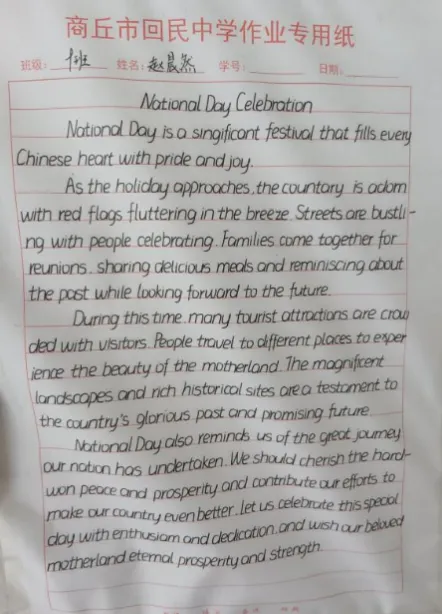 商丘市回民中学作业专用纸
班级: 1班 姓名: 赵晨然 学号: 日期:
National Day Celebration
National Day is a singificant festival that fills every
Chinese heart with pride and joy.
As the holiday approaches, the countary is adorn
with red flags fluttering in the breeze. Streets are bustli-
ng with people celebrating. Families come together for
reunions, sharing delicious meals and reminiscing about
the past while looking forward to the future.
During this time, many tourist attractions are crow
ded with visitors. People travel to different places to exper
ience the beauty of the motherland. The magnificent
landscapes and rich historical sites are a testament to
the country's glorious past and promising future.
National Day also reminds us of the great journey
our nation has undertaken. We should cherish the hard-
won peace and prosperity and contribute our efforts to
make our country even better. let us celebrate this special
day with enthusiam and dedication, and wish our beloved
motherland eternal prosperity and strength.